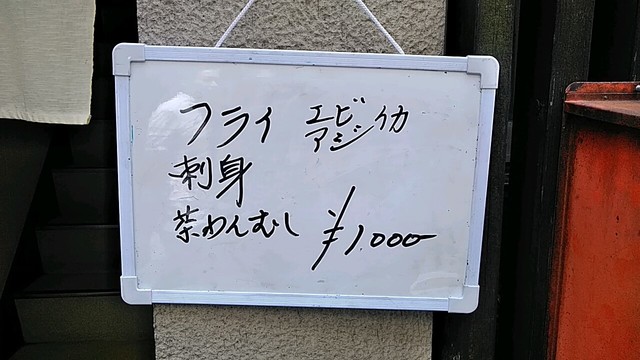 フライ エビ イカ
アジ
刺身
茶わんむし ¥1.000